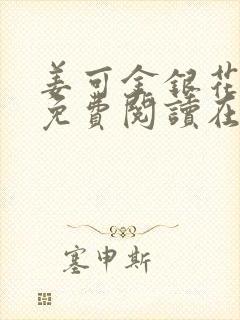 姜可金銀花
免費閱讀在
塞申斯